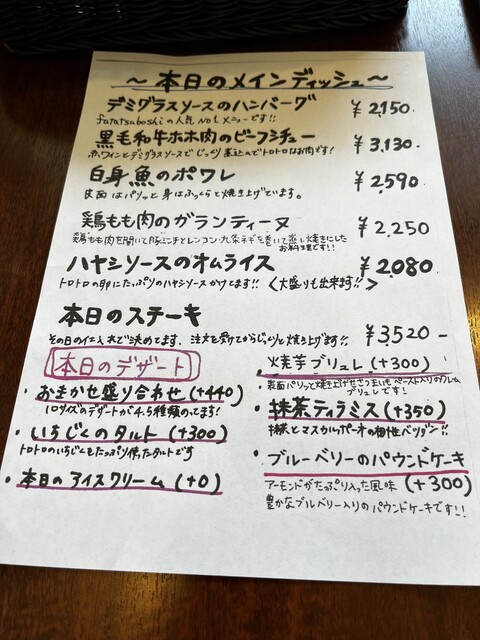 ～本日のメインディッシュ～
デミグラスソースのハンバーグ ¥2,150.
futatsuboshiの人気No1メニューです!!
黒毛和牛ホホ肉のビーフシチュー ¥3,130.
赤ワインとデミグラスソースでじっくり煮込んでトロトロなお肉です!
白身魚のポワレ ¥2,590
皮面はパリッと身はふっくらと焼き上げています。
鶏もも肉のガランティーヌ ¥2,250
鶏もも肉を開いて豚ミンチとレンコン・九条ネギを巻いて蒸し焼きにした
お料理です!!
ハヤシソースのオムライス ¥2080.
トロトロの卵にたっぷりのハヤシソースかけてます!!〈大盛りも出来ます!!〉
本日のステーキ ¥3,520-
その日の仕入れで決めてます。注文を受けてからじっくりと焼き上げます!!
本日のデザート
・おまかせ盛り合わせ(+440)
1口サイズのデザートが4.5種類のってます!
・いちじくのタルト(+300)
トロトロのいちじくをたっぷり使ったタルトです
・本日のアイスクリーム(+0)
・焼芋ブリュレ(+300)
表面パリッと焼き上げたさつまいもペースト入りのクレーム
ブリュレです!
・抹茶ティラミス(+350)
抹茶とマスカルポーネの相性バツグン!!
・ブルーベリーのパウンドケーキ
(+300)
アーモンドがたっぷり入った風味
豊かなブルーベリー入りのパウンドケーキです!!